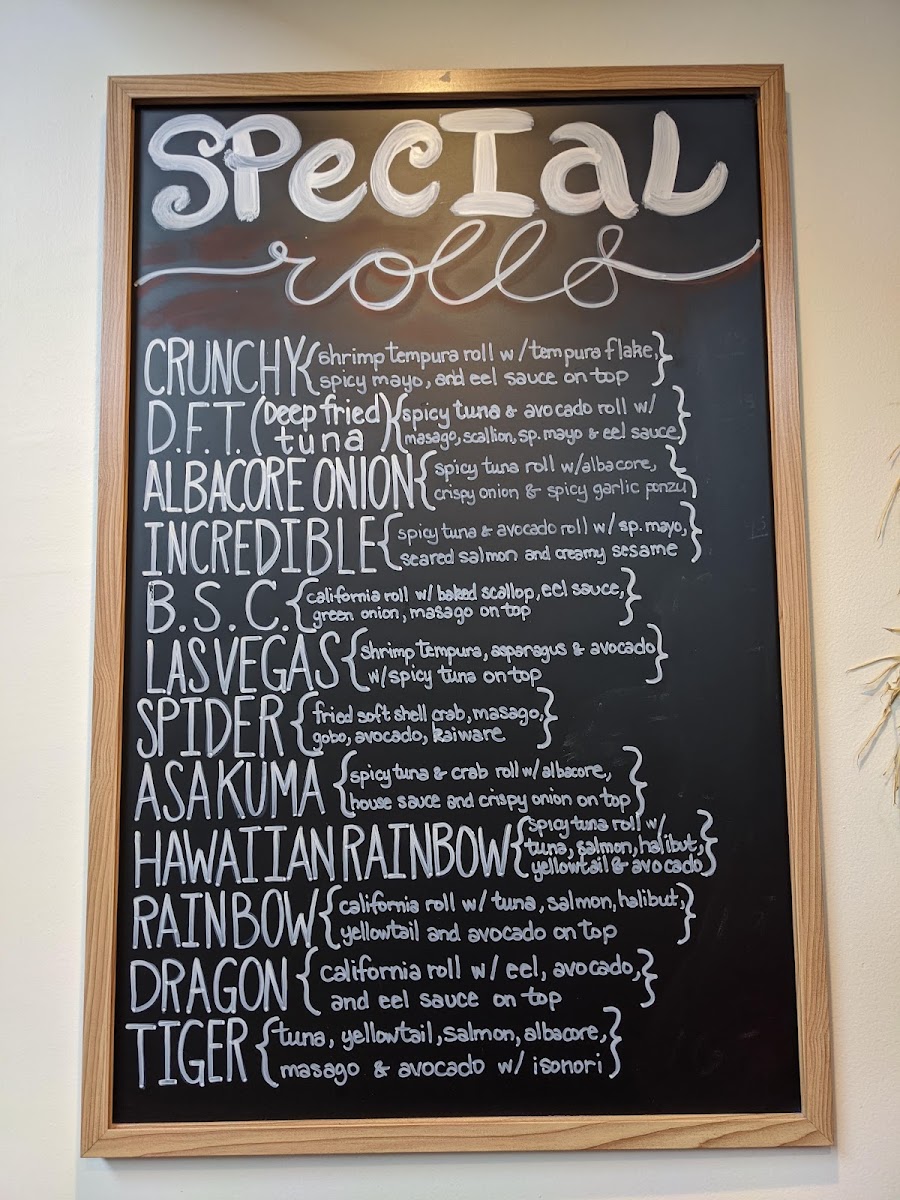 SPecIaL
rolls
CRUNCHY { shrimp tempura roll w/tempura flake,
spicy mayo, and eel sauce on top }
D.F.T. (Deep fried tuna) { spicy tuna & avocado roll w/
masago, scallion, sp. mayo & eel sauce }
ALBACORE ONION { spicy tuna roll w/albacore,
crispy onion & spicy garlic ponzu }
INCREDIBLE { spicy tuna & avocado roll w/ sp. mayo,
seared salmon and creamy sesame }
B. S. C. { california roll w/ baked scallop, eel sauce,
green onion, masago on top }
LAS VEGAS { shrimp tempura, asparagus & avocado
w/spicy tuna on top }
SPIDER { fried soft shell crab, masago,
gobo, avocado, kaiware }
ASAKUMA { spicy tuna & crab roll w/albacore,
house sauce and crispy onion on top }
HAWAIIAN RAINBOW { spicy tuna roll w/
tuna, salmon, halibut,
yellowtail & avocado }
RAINBOW { california roll w/ tuna, salmon, halibut,
yellowtail and avocado on top }
DRAGON { california roll w/ eel, avocado,
and eel sauce on top }
TIGER { tuna, yellowtail, salmon, albacore,
masago & avocado w/ isonori }